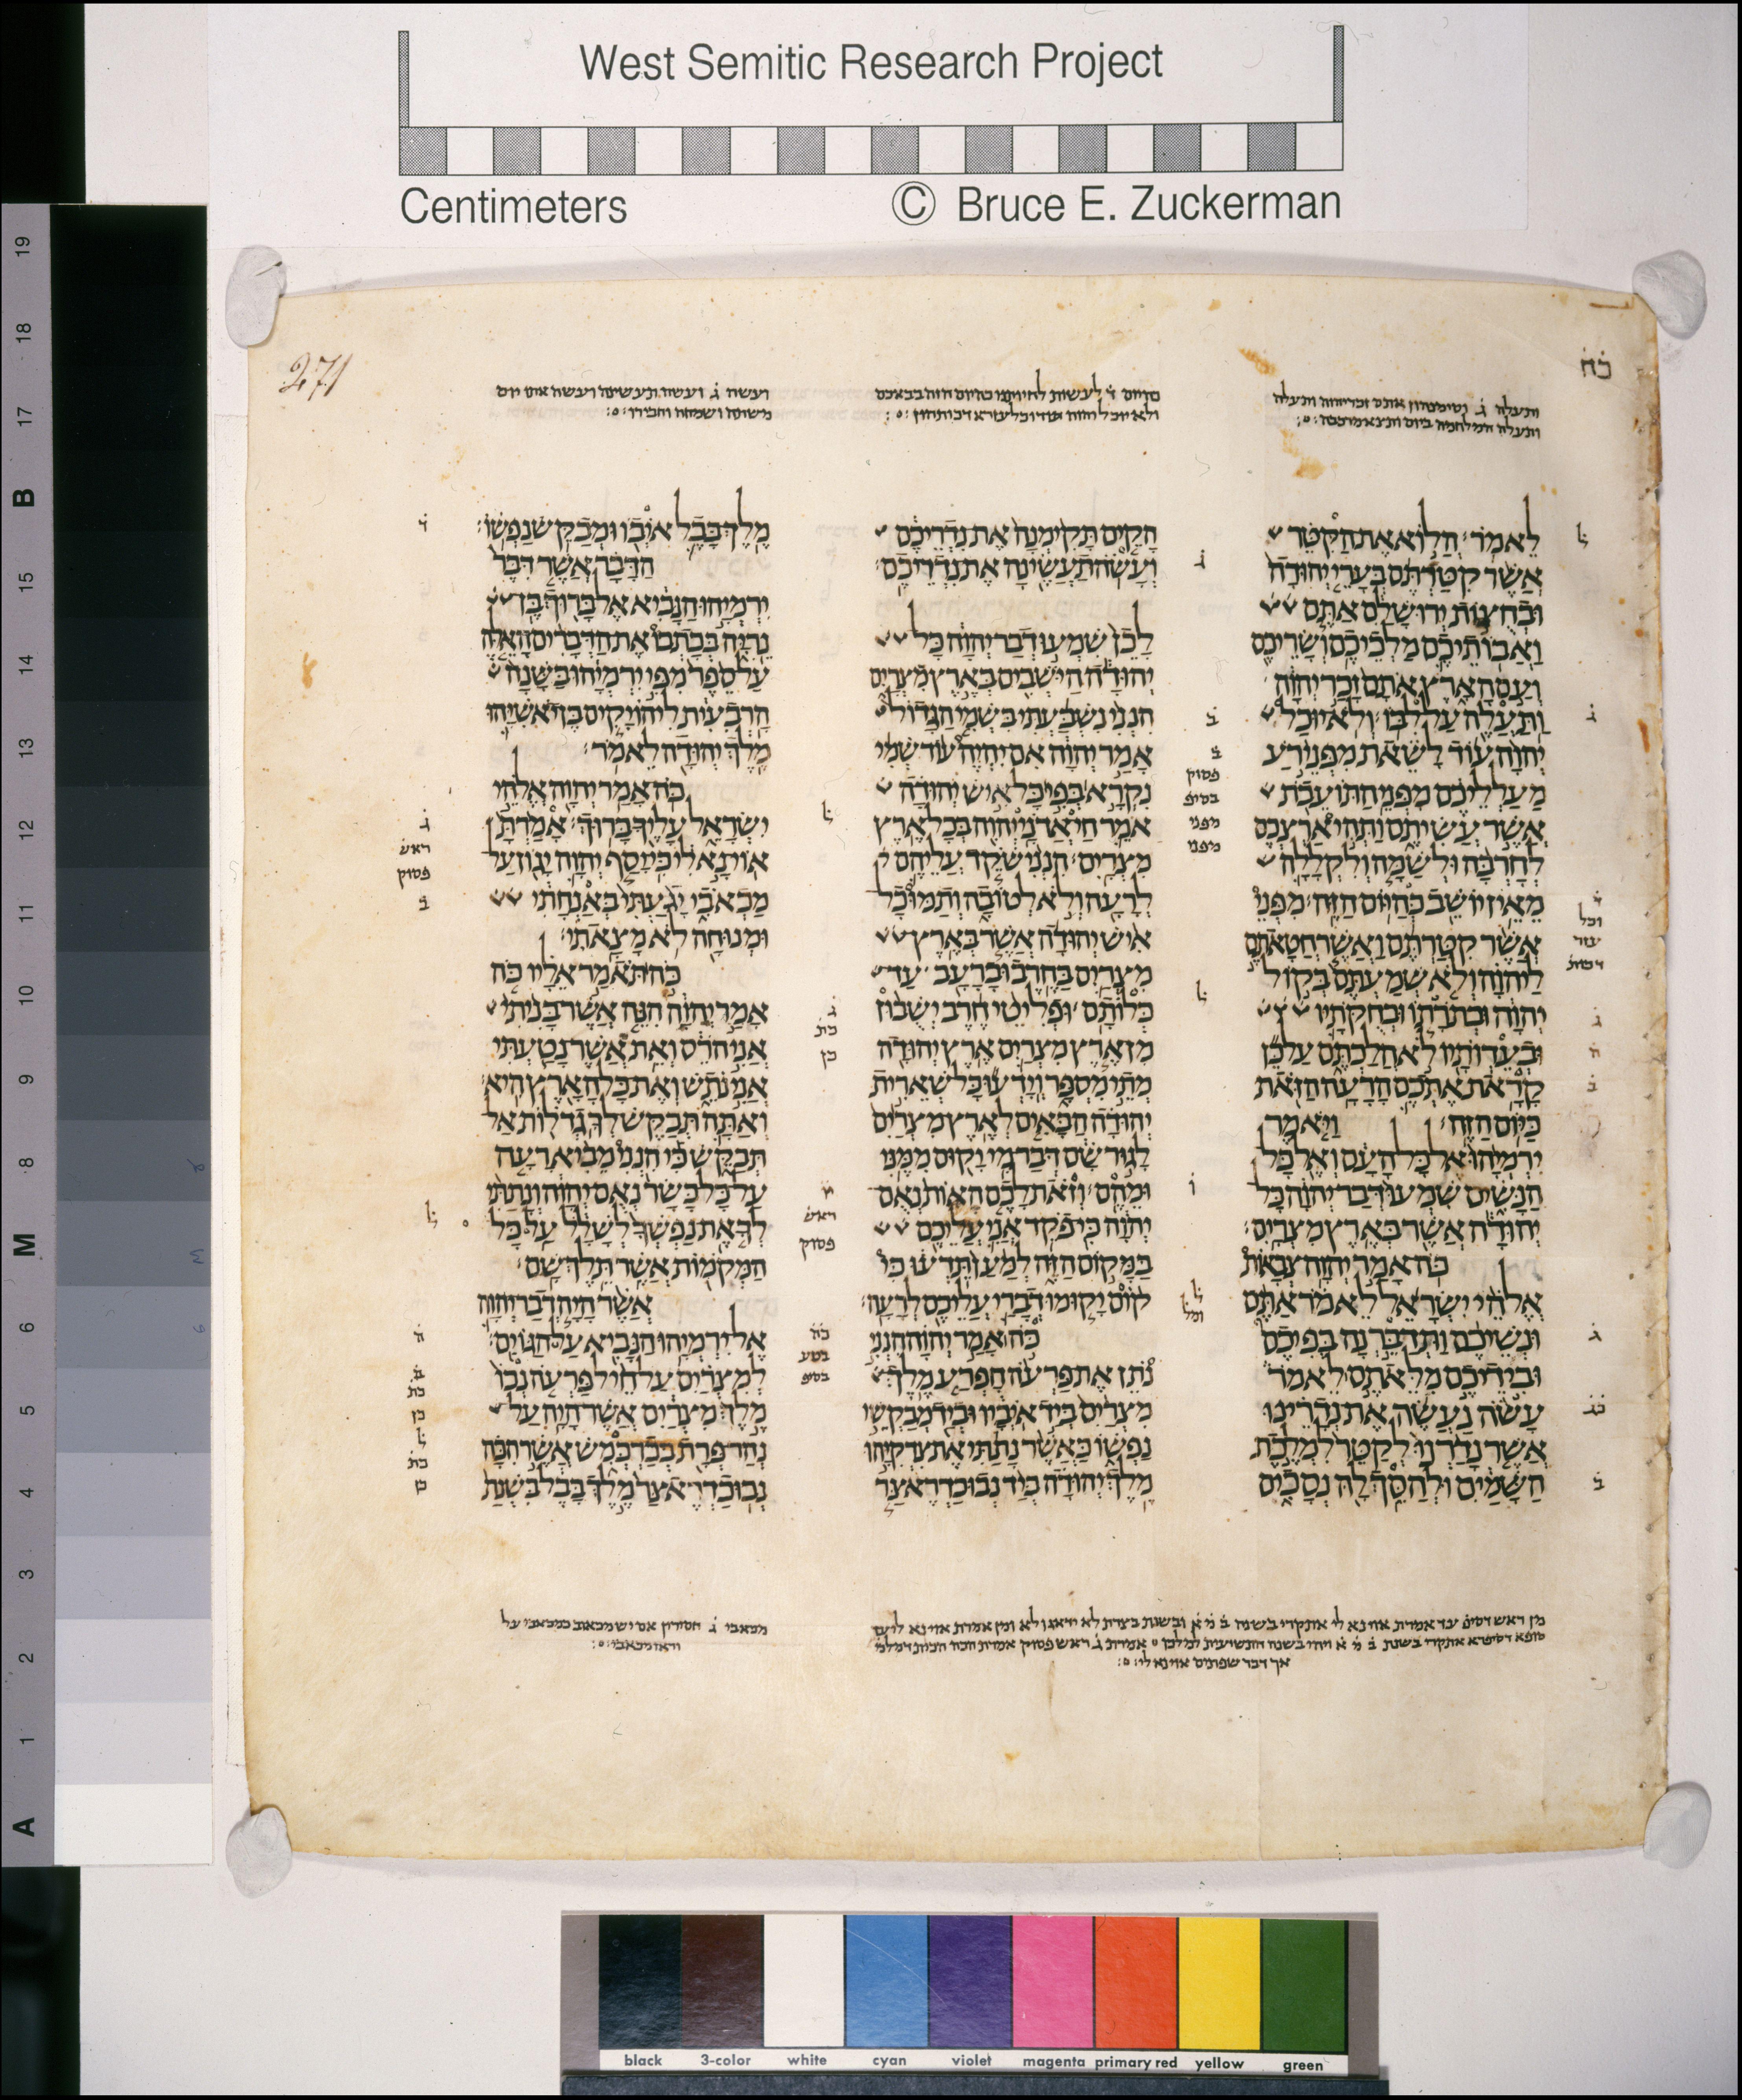 West Semitic Research Project
Centimeters
© Bruce E. Zuckerman
271
כח
לֵאמֹר׃ הֲלוֹא אֶת הַקִּטֵּר
אֲשֶׁר קִטַּרְתֶּם בְּעָרֵי יְהוּדָה
וּבְחֻצוֹת יְרוּשָׁלִַם אַתֶּם
וַאֲבוֹתֵיכֶם מַלְכֵיכֶם וְשָׂרֵיכֶם
וְעַם הָאָרֶץ אֹתָם זָכַר יְהוָה
וַתַּעֲלֶה עַל לִבּוֹ׃ וְלֹא יוּכַל
יְהוָה עוֹד לָשֵׂאת מִפְּנֵי רֹעַ
מַעַלְלֵיכֶם מִפְּנֵי הַתּוֹעֵבֹת
אֲשֶׁר עֲשִׂיתֶם וַתְּהִי אַרְצְכֶם
לְחָרְבָּה וּלְשַׁמָּה וְלִקְלָלָה
מֵאֵין יוֹשֵׁב כְּהַיּוֹם הַזֶּה׃ מִפְּנֵי
אֲשֶׁר קִטַּרְתֶּם וַאֲשֶׁר חֲטָאתֶם
לַיהוָה וְלֹא שְׁמַעְתֶּם בְּקוֹל
יְהוָה וּבְתֹרָתוֹ וּבְחֻקֹּתָיו
וּבְעֵדְוֺתָיו לֹא הֲלַכְתֶּם עַל כֵּן
קָרָאת אֶתְכֶם הָרָעָה הַזֹּאת
כַּיּוֹם הַזֶּה׃ וַיֹּאמֶר
יִרְמְיָהוּ אֶל כָּל הָעָם וְאֶל כָּל
הַנָּשִׁים שִׁמְעוּ דְּבַר יְהוָה כָּל
יְהוּדָה אֲשֶׁר בְּאֶרֶץ מִצְרָיִם׃
כֹּה אָמַר יְהוָה צְבָאוֹת
אֱלֹהֵי יִשְׂרָאֵל לֵאמֹר אַתֶּם
וּנְשֵׁיכֶם וַתְּדַבֵּרְנָה בְּפִיכֶם
וּבִידֵיכֶם מִלֵּאתֶם לֵאמֹר
עָשֹׂה נַעֲשֶׂה אֶת נְדָרֵינוּ
אֲשֶׁר נָדַרְנוּ לְקַטֵּר לִמְלֶכֶת
הַשָּׁמַיִם וּלְהַסֵּךְ לָהּ נְסָכִים
הָקֵים תָּקִימְנָה אֶת נִדְרֵיכֶם
וְעָשֹׂה תַעֲשֶׂינָה אֶת נִדְרֵיכֶם׃
לָכֵן שִׁמְעוּ דְבַר יְהוָה כָּל
יְהוּדָה הַיֹּשְׁבִים בְּאֶרֶץ מִצְרָיִם
הִנְנִי נִשְׁבַּעְתִּי בִּשְׁמִי הַגָּדוֹל
אָמַר יְהוָה אִם יִהְיֶה עוֹד שְׁמִי
נִקְרָא בְּפִי כָּל אִישׁ יְהוּדָה
אֹמֵר חַי אֲדֹנָי יְהוִה בְּכָל אֶרֶץ
מִצְרָיִם׃ הִנְנִי שֹׁקֵד עֲלֵיהֶם
לְרָעָה וְלֹא לְטוֹבָה וְתַמּוּ כָל
אִישׁ יְהוּדָה אֲשֶׁר בְּאֶרֶץ
מִצְרַיִם בַּחֶרֶב וּבָרָעָב עַד
כְּלוֹתָם׃ וּפְלִיטֵי חֶרֶב יְשֻׁבוּן
מִן אֶרֶץ מִצְרַיִם אֶרֶץ יְהוּדָה
מְתֵי מִסְפָּר וְיָדְעוּ כָּל שְׁאֵרִית
יְהוּדָה הַבָּאִים לְאֶרֶץ מִצְרַיִם
לָגוּר שָׁם דְּבַר מִי יָקוּם מִמֶּנִּי
וּמֵהֶם׃ וְזֹאת לָכֶם הָאוֹת נְאֻם
יְהוָה כִּי פֹקֵד אֲנִי עֲלֵיכֶם
בַּמָּקוֹם הַזֶּה לְמַעַן תֵּדְעוּ כִּי
קוֹם יָקוּמוּ דְבָרַי עֲלֵיכֶם לְרָעָה׃
כֹּה אָמַר יְהוָה הִנְנִי
נֹתֵן אֶת פַּרְעֹה חָפְרַע מֶלֶךְ
מִצְרַיִם בְּיַד אֹיְבָיו וּבְיַד מְבַקְשֵׁי
נַפְשׁוֹ כַּאֲשֶׁר נָתַתִּי אֶת צִדְקִיָּהוּ
מֶלֶךְ יְהוּדָה בְּיַד נְבוּכַדְרֶאצַּר
מֶלֶךְ בָּבֶל אֹיְבוֹ וּמְבַקֵּשׁ נַפְשׁוֹ׃
הַדָּבָר אֲשֶׁר דִּבֶּר
יִרְמְיָהוּ הַנָּבִיא אֶל בָּרוּךְ בֶּן
נֵרִיָּה בְּכָתְבוֹ אֶת הַדְּבָרִים הָאֵלֶּה
עַל סֵפֶר מִפִּי יִרְמְיָהוּ בַּשָּׁנָה
הָרְבִעִית לִיהוֹיָקִים בֶּן יֹאשִׁיָּהוּ
מֶלֶךְ יְהוּדָה לֵאמֹר׃
כֹּה אָמַר יְהוָה אֱלֹהֵי
יִשְׂרָאֵל עָלֶיךָ בָּרוּךְ׃ אָמַרְתָּ
אוֹי נָא לִי כִּי יָסַף יְהוָה יָגוֹן עַל
מַכְאֹבִי יָגַעְתִּי בְּאַנְחָתִי
וּמְנוּחָה לֹא מָצָאתִי׃
כֹּה תֹּאמַר אֵלָיו כֹּה
אָמַר יְהוָה הִנֵּה אֲשֶׁר בָּנִיתִי
אֲנִי הֹרֵס וְאֵת אֲשֶׁר נָטַעְתִּי
אֲנִי נֹתֵשׁ וְאֶת כָּל הָאָרֶץ הִיא׃
וְאַתָּה תְּבַקֶּשׁ לְךָ גְדֹלוֹת אַל
תְּבַקֵּשׁ כִּי הִנְנִי מֵבִיא רָעָה
עַל כָּל בָּשָׂר נְאֻם יְהוָה וְנָתַתִּי
לְךָ אֶת נַפְשְׁךָ לְשָׁלָל עַל כָּל
הַמְּקֹמוֹת אֲשֶׁר תֵּלֶךְ שָׁם׃
אֲשֶׁר הָיָה דְבַר יְהוָה
אֶל יִרְמְיָהוּ הַנָּבִיא עַל הַגּוֹיִם׃
לְמִצְרַיִם עַל חֵיל פַּרְעֹה נְכוֹ
מֶלֶךְ מִצְרַיִם אֲשֶׁר הָיָה עַל
נְהַר פְּרָת בְּכַרְכְּמִשׁ אֲשֶׁר הִכָּה
נְבוּכַדְרֶאצַּר מֶלֶךְ בָּבֶל בִּשְׁנַת
19
18
17
B
15
14
13
12
11
10
9
8
M
6
5
4
3
2
1
A
black 3-color white cyan violet magenta primary red yellow green